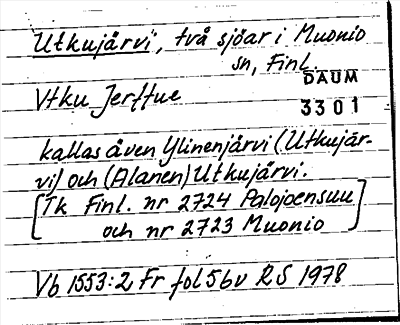 Utkujärvi, två sjöar i Muonio
sn, Finl.
DAUM
Vtku Jerffue
3301
kallas även Ylinenjärvi (Utkujär-
vi) och (Alanen) Utkujärvi.
[Tk Finl. nr 2724 Palojoensuu
och nr 2723 Muonio]
Vb 1553:2 Fr fol 56v RS 1978